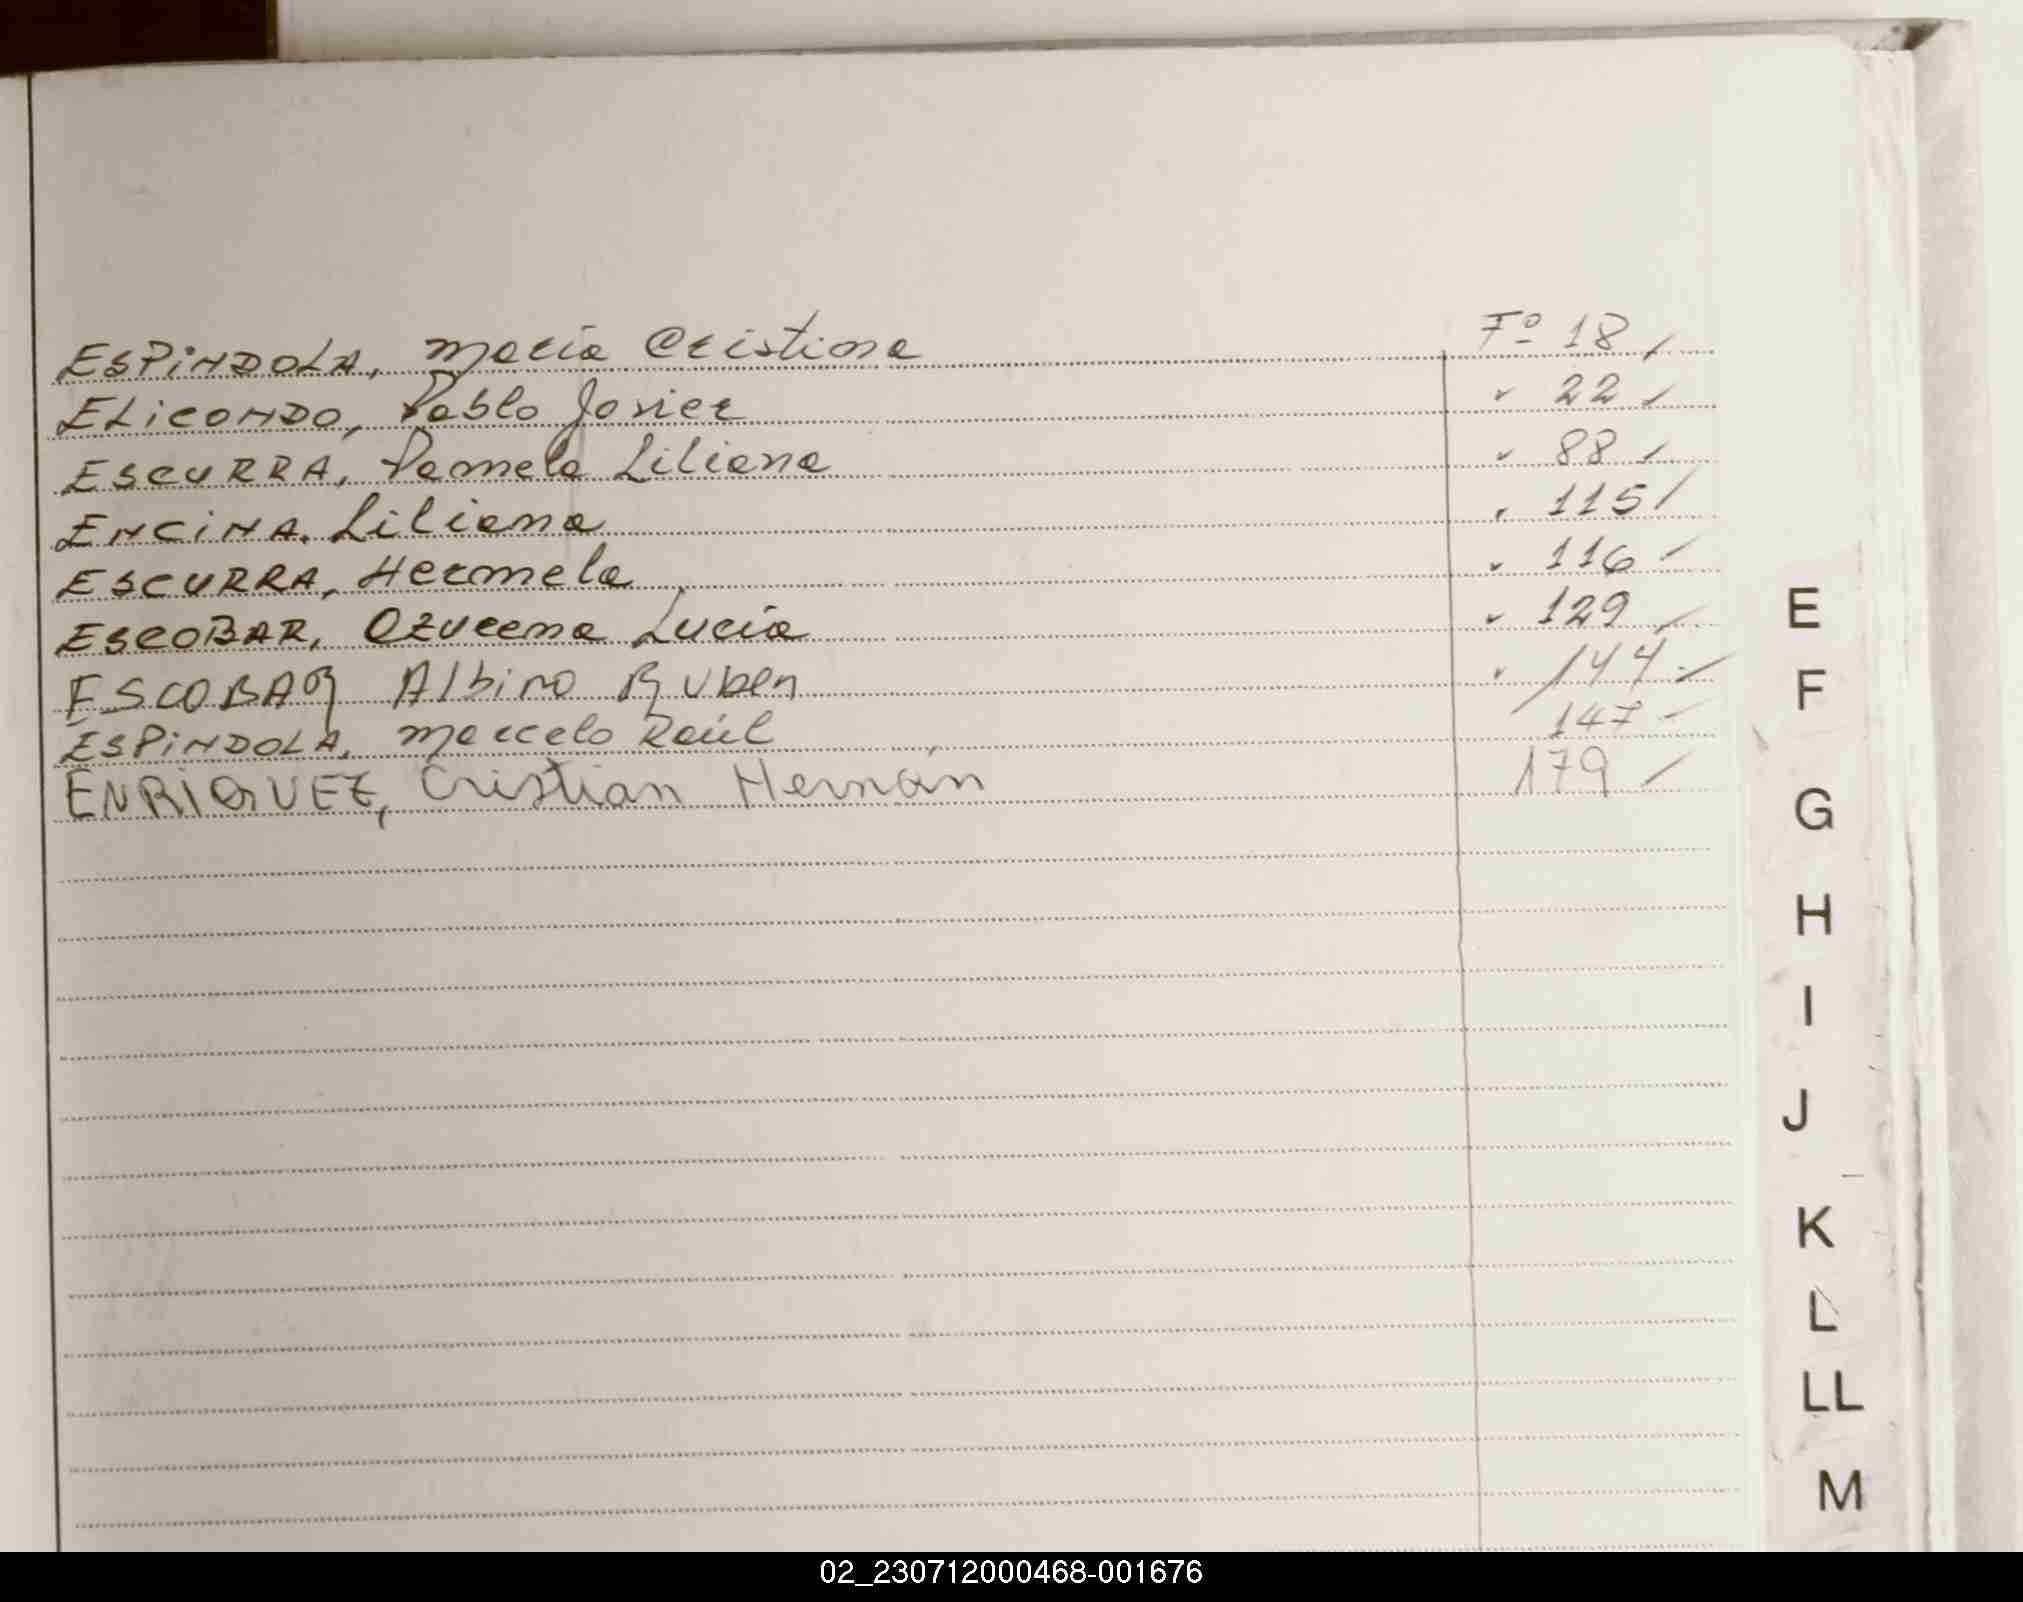 ESPINDOLA, María Cristina Fº 18 /
ELICONDO, Pablo Javier " 22 /
ESCURRA, Pamela Liliana " 88 /
ENCINA, Liliana " 115 /
ESCURRA, Hermela " 116 /
ESCOBAR, Azucena Lucía " 129 /
ESCOBAR Albino Ruben " 144 /
ESPINDOLA, Marcelo Raúl 147 /
ENRIQUEZ, Cristian Hernán 179 /
E
F
G
H
I
J
K
L
LL
M
02_230712000468-001676